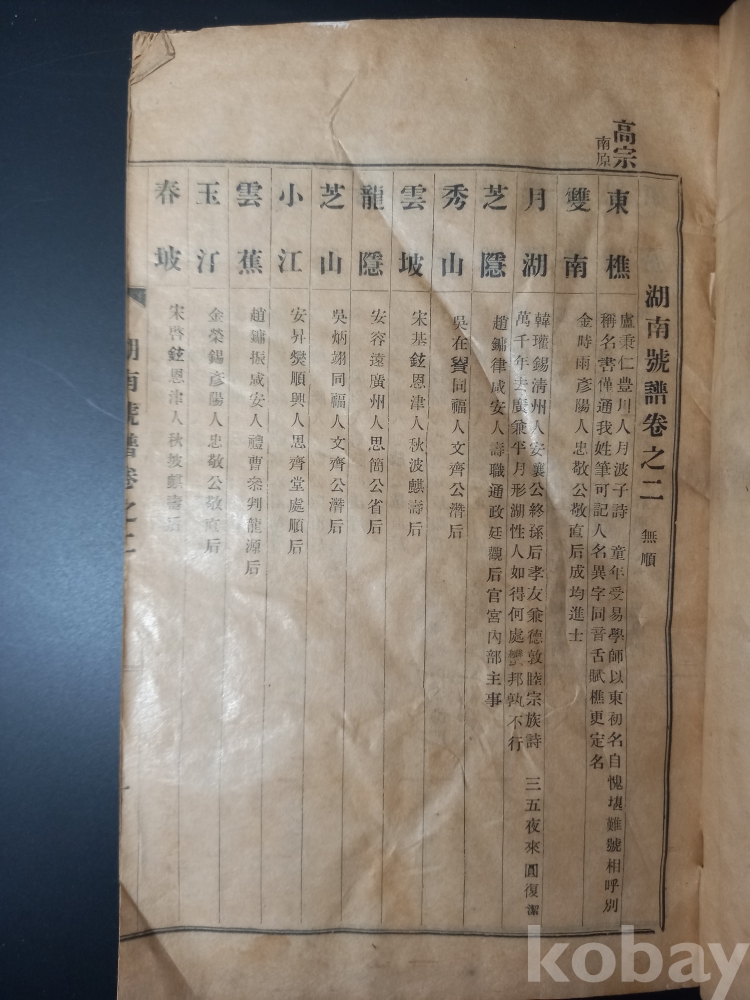 高宗
南原
湖南號譜卷之二 無順
東樵 盧秉仁豊川人月波子詩 童年受易學師以東初名自愧堪難號相呼別
稱名書僅通我姓筆可記人名異字同音舌賦樵更定名
雙南 金時雨彥陽人忠敬公敬直后成均進士
月湖 韓瓘錫清州人安襄公終孫后孝友兼德敦睦宗族詩 三五夜來圓復潔
萬千年去廣兼平月形湖性人如得何處蠻邦孰不行
芝隱 趙鏞律咸安人壽職通政廷觀后官宮內部主事
秀山 吳在賛同福人文齊公潛后
雲坡 宋基鉉恩津人秋波麒壽后
龍隱 安容遠廣州人思簡公省后
芝山 吳炳翊同福人文齊公潛后
小江 安昇燮順興人思齊堂處順后
雲蕉 趙鏞振咸安人禮曹參判龍源后
玉汀 金榮錫彥陽人忠敬公敬直后
春坡 宋啓鉉恩津人秋波麒壽后
湖南號譜卷之二
kobay